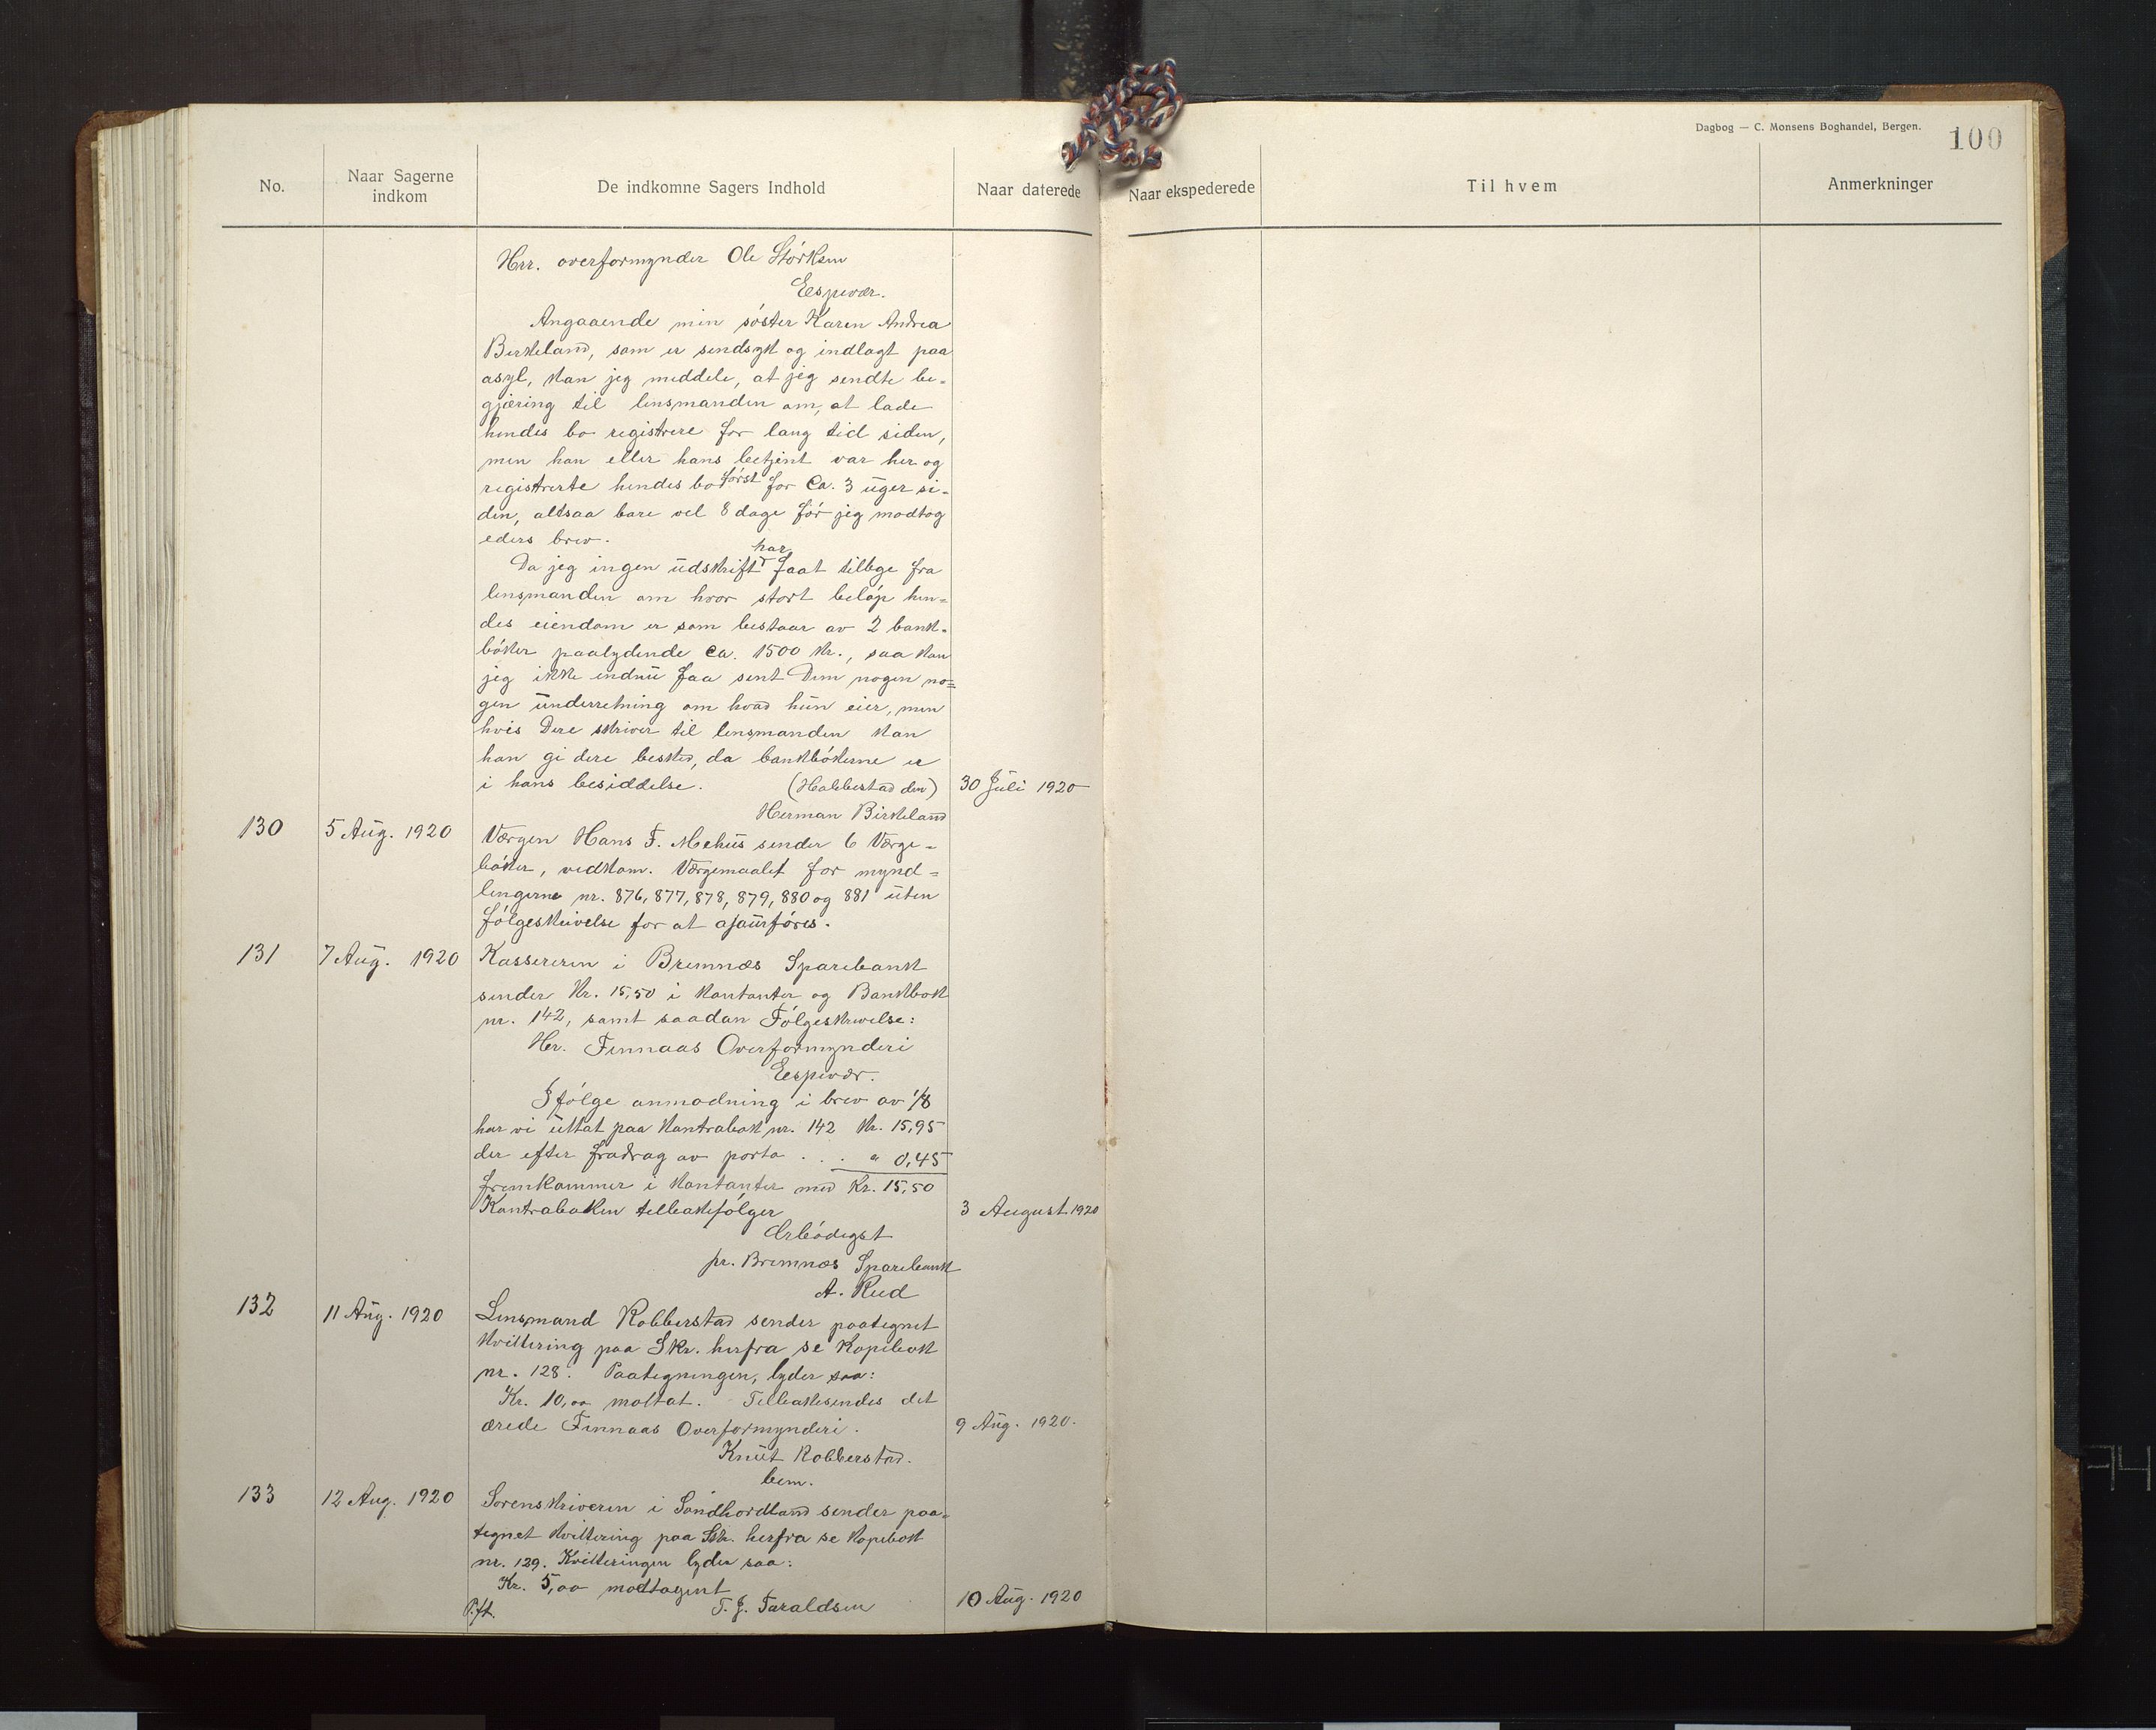 Dagbog — C. Monsens Boghandel, Bergen.
100
No.
Naar Sagerne
indkom
De indkomne Sagers Indhold
Naar daterede
Naar ekspederede
Til hvem
Anmerkninger
Hrr. overformynder Ole Størksen
Espevær.
Angaaende min søster Karen Andrea
Birkeland, som er sindsyk og indlagt paa
asyl, kan jeg meddele, at jeg sendte be-
gjæring til lensmanden om, at lade
hendes bo registrere for lang tid siden,
men han eller hans betjent var her og
registrerte hendes bo først for ca. 3 uger si-
den, altsaa bare vel 8 dage før jeg modtog
eders brev.
Da jeg ingen udskrift har faat tilbage fra
lensmanden om hvor stort beløp hen-
des eiendom er som bestaar av 2 bank-
bøker paalydende ca. 1500 kr., saa kan
jeg ikke endnu faa sent Dem nogen no-
gen underretning om hvad hun eier, men
hvis Dere skriver til lensmanden kan
han gi dere besked, da bankbøkerne er
i hans besiddelse. (Habbestad den) 30 Juli 1920
Herman Birkeland
130 5 Aug. 1920 Værgen Hans F. Mehus sender 6 Værge-
bøker, vedkom. Værgemaalet for mynd-
lingerne nr. 876, 877, 878, 879, 880 og 881 uten
følgeskrivelse for at ajourføres.
131 7 Aug. 1920 Kassereren i Bremnæs Sparebank
sender kr. 15,50 i kontanter og Bankbok
nr. 142, samt saadan Følgeskrivelse:
Hr. Finnaas Overformynderi
Espevær.
Ifølge anmodning i brev av 1/8
har vi uttat paa kontrabok nr. 142 kr. 15,95
der efter fradrag av porto . . . " 0,45
fremkommer i kontanter med Kr. 15,50
Kontraboken tilbakefølger 3 August 1920
Ærbødigst
pr. Bremnæs Sparebank
A. Rud
132 11 Aug. 1920 Lensmand Robberstad sender paategnet
kvittering paa Skr. herfra se Kopibok
nr. 128. Paategningen, lyder saa:
Kr. 10,00 mottat. Tilbakesendes det
ærede Finnaas Overformynderi. 9 Aug. 1920.
Knut Robberstad.
bem.
133 12 Aug. 1920 Sorenskriveren i Søndhordland sender paa-
tegnet kvittering paa Skr. herfra se kopibok
nr. 129. Kvitteringen lyder saa:
Kr. 5,00 modtagent
P.ft. T. J. Taraldsen 10 Aug. 1920